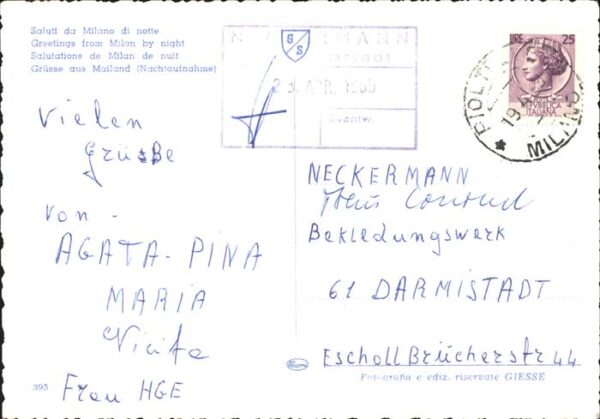 Saluti da Milano di notte
Greetings from Milan by night
Salutations de Milan de nuit
Grüsse aus Mailand (Nachtaufnahme)
G
S
APR. 1969
Beantw.
LIRE 25
REPVBBLICA
ITALIANA
PIOLT
19
MILANO
Vielen
Grüsße
von -
AGATA - PINA
MARIA
Nicita
Frau HGE
NECKERMANN
Conrad
Bekledungswerk
61 DARMISTADT
EschollBrücherstr 44
395
Fotografia e ediz. riservate GIESSE